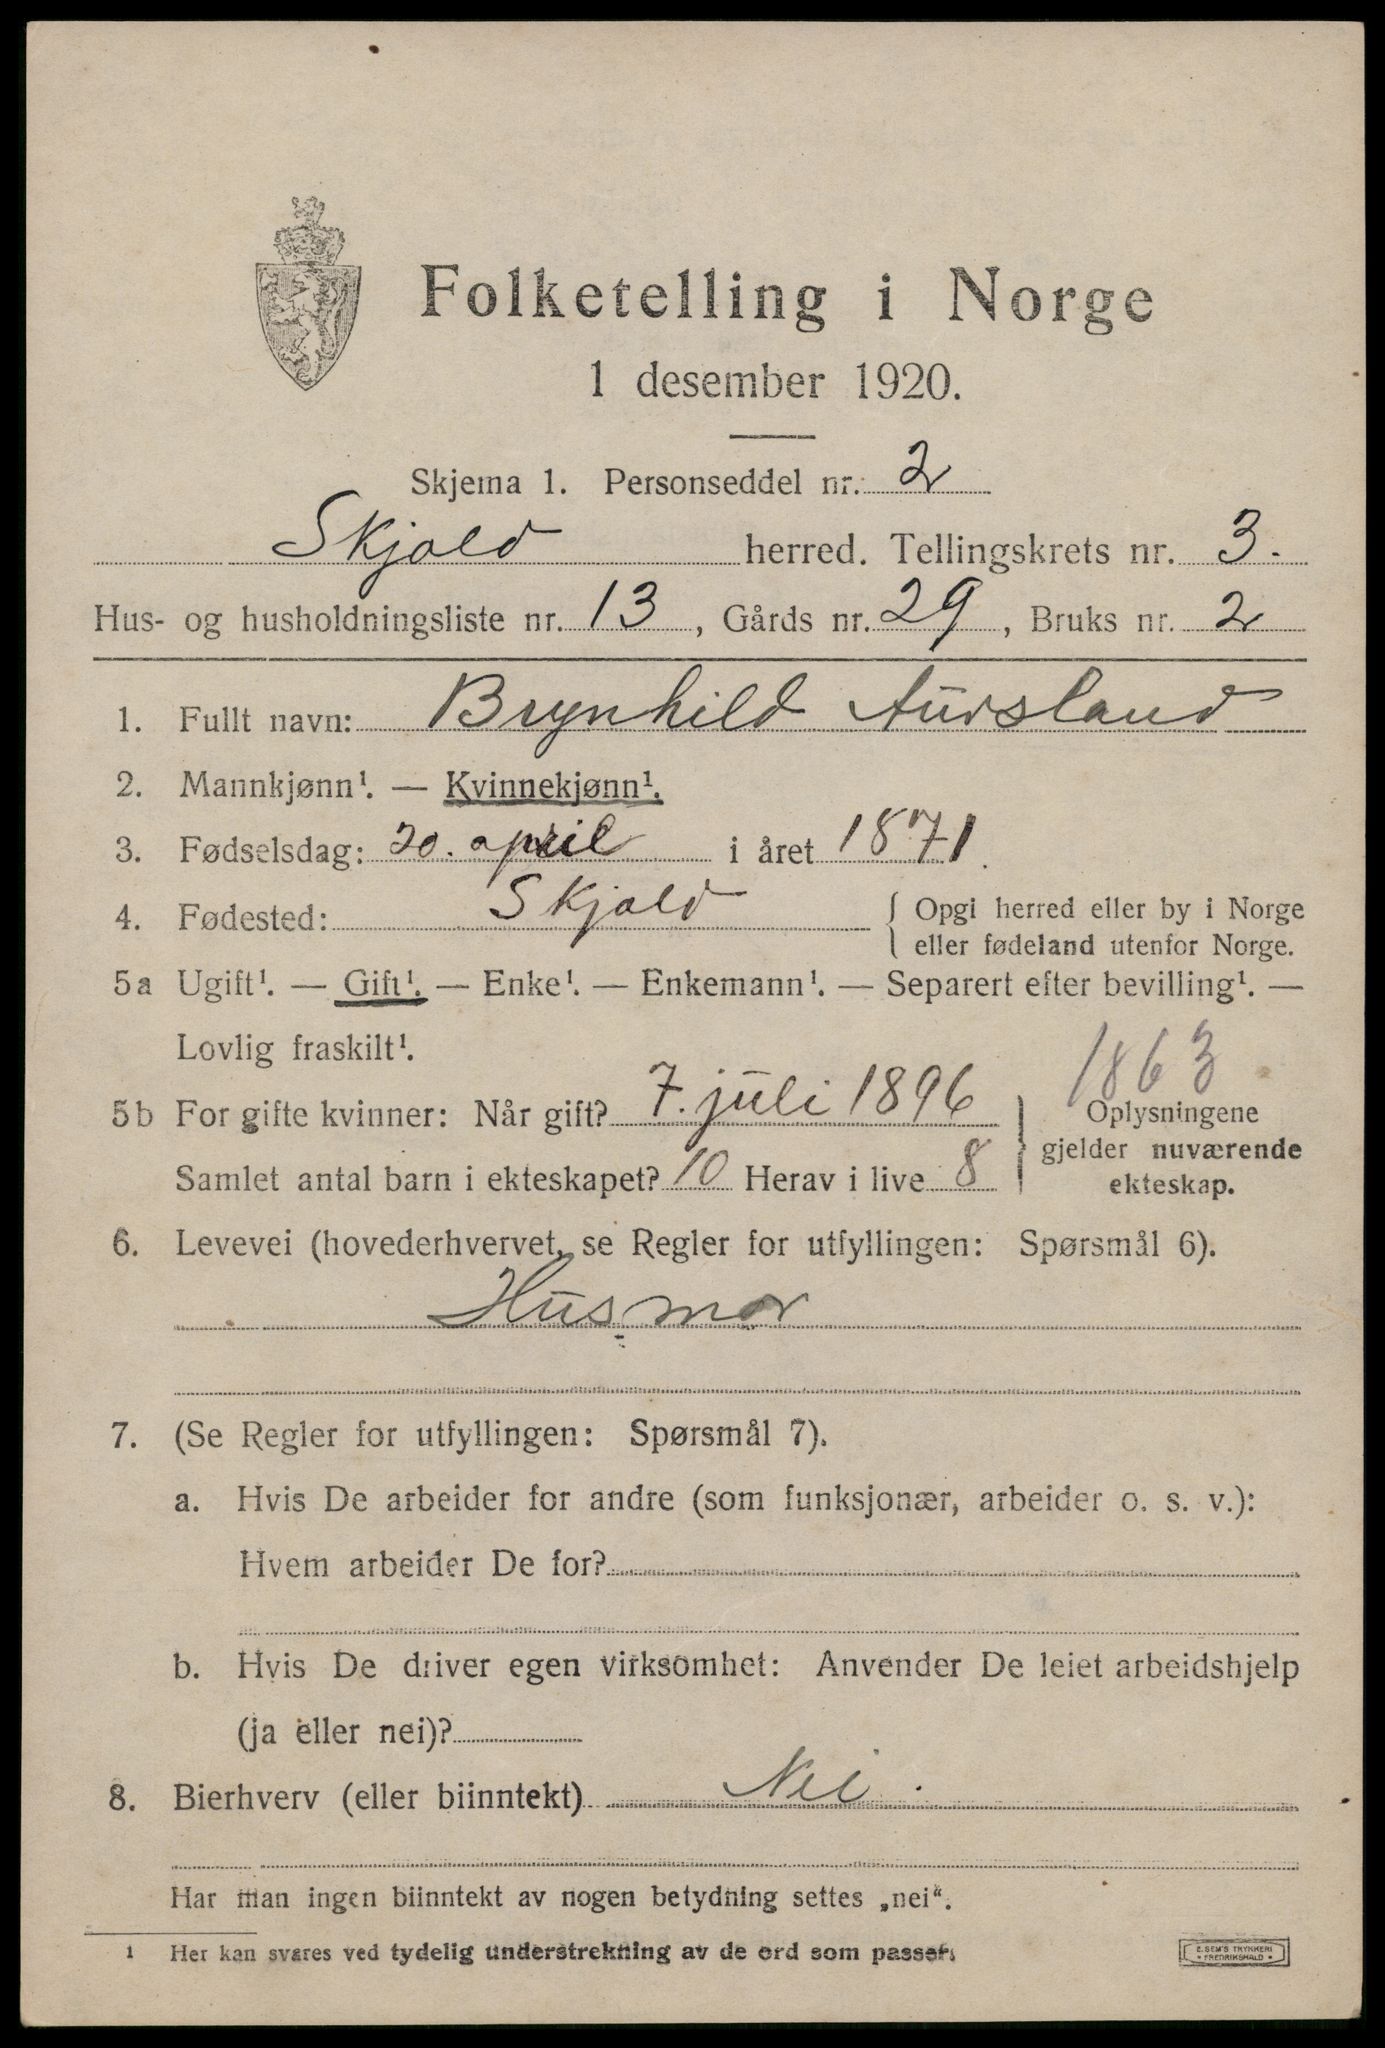 Folketelling i Norge
1 desember 1920.
Skjema 1. Personseddel nr. 2
Skjold herred. Tellingskrets nr. 3.
Hus- og husholdningsliste nr. 13, Gårds nr. 29, Bruks nr. 2
1. Fullt navn: Brynhild Aursland
2. Mannkjønn¹. — Kvinnekjønn¹.
3. Fødselsdag: 20. april i året 1871.
4. Fødested: Skjold { Opgi herred eller by i Norge
eller fødeland utenfor Norge.
5a Ugift¹. — Gift¹. — Enke¹. — Enkemann¹. — Separert efter bevilling¹. —
Lovlig fraskilt¹.
1863
5b For gifte kvinner: Når gift? 7. juli 1896 } Oplysningene
gjelder nuværende
Samlet antal barn i ekteskapet? 10 Herav i live 8 ekteskap.
6. Levevei (hovederhvervet, se Regler for utfyllingen: Spørsmål 6).
Husmor
7. (Se Regler for utfyllingen: Spørsmål 7).
a. Hvis De arbeider for andre (som funksjonær, arbeider o. s. v.):
Hvem arbeider De for?
b. Hvis De driver egen virksomhet: Anvender De leiet arbeidshjelp
(ja eller nei)?
8. Bierhverv (eller biinntekt) Nei.
Har man ingen biinntekt av nogen betydning settes „nei“.
¹ Her kan svares ved tydelig understrekning av de ord som passer.
E. SEM'S TRYKKERI
* FREDRIKSHALD *